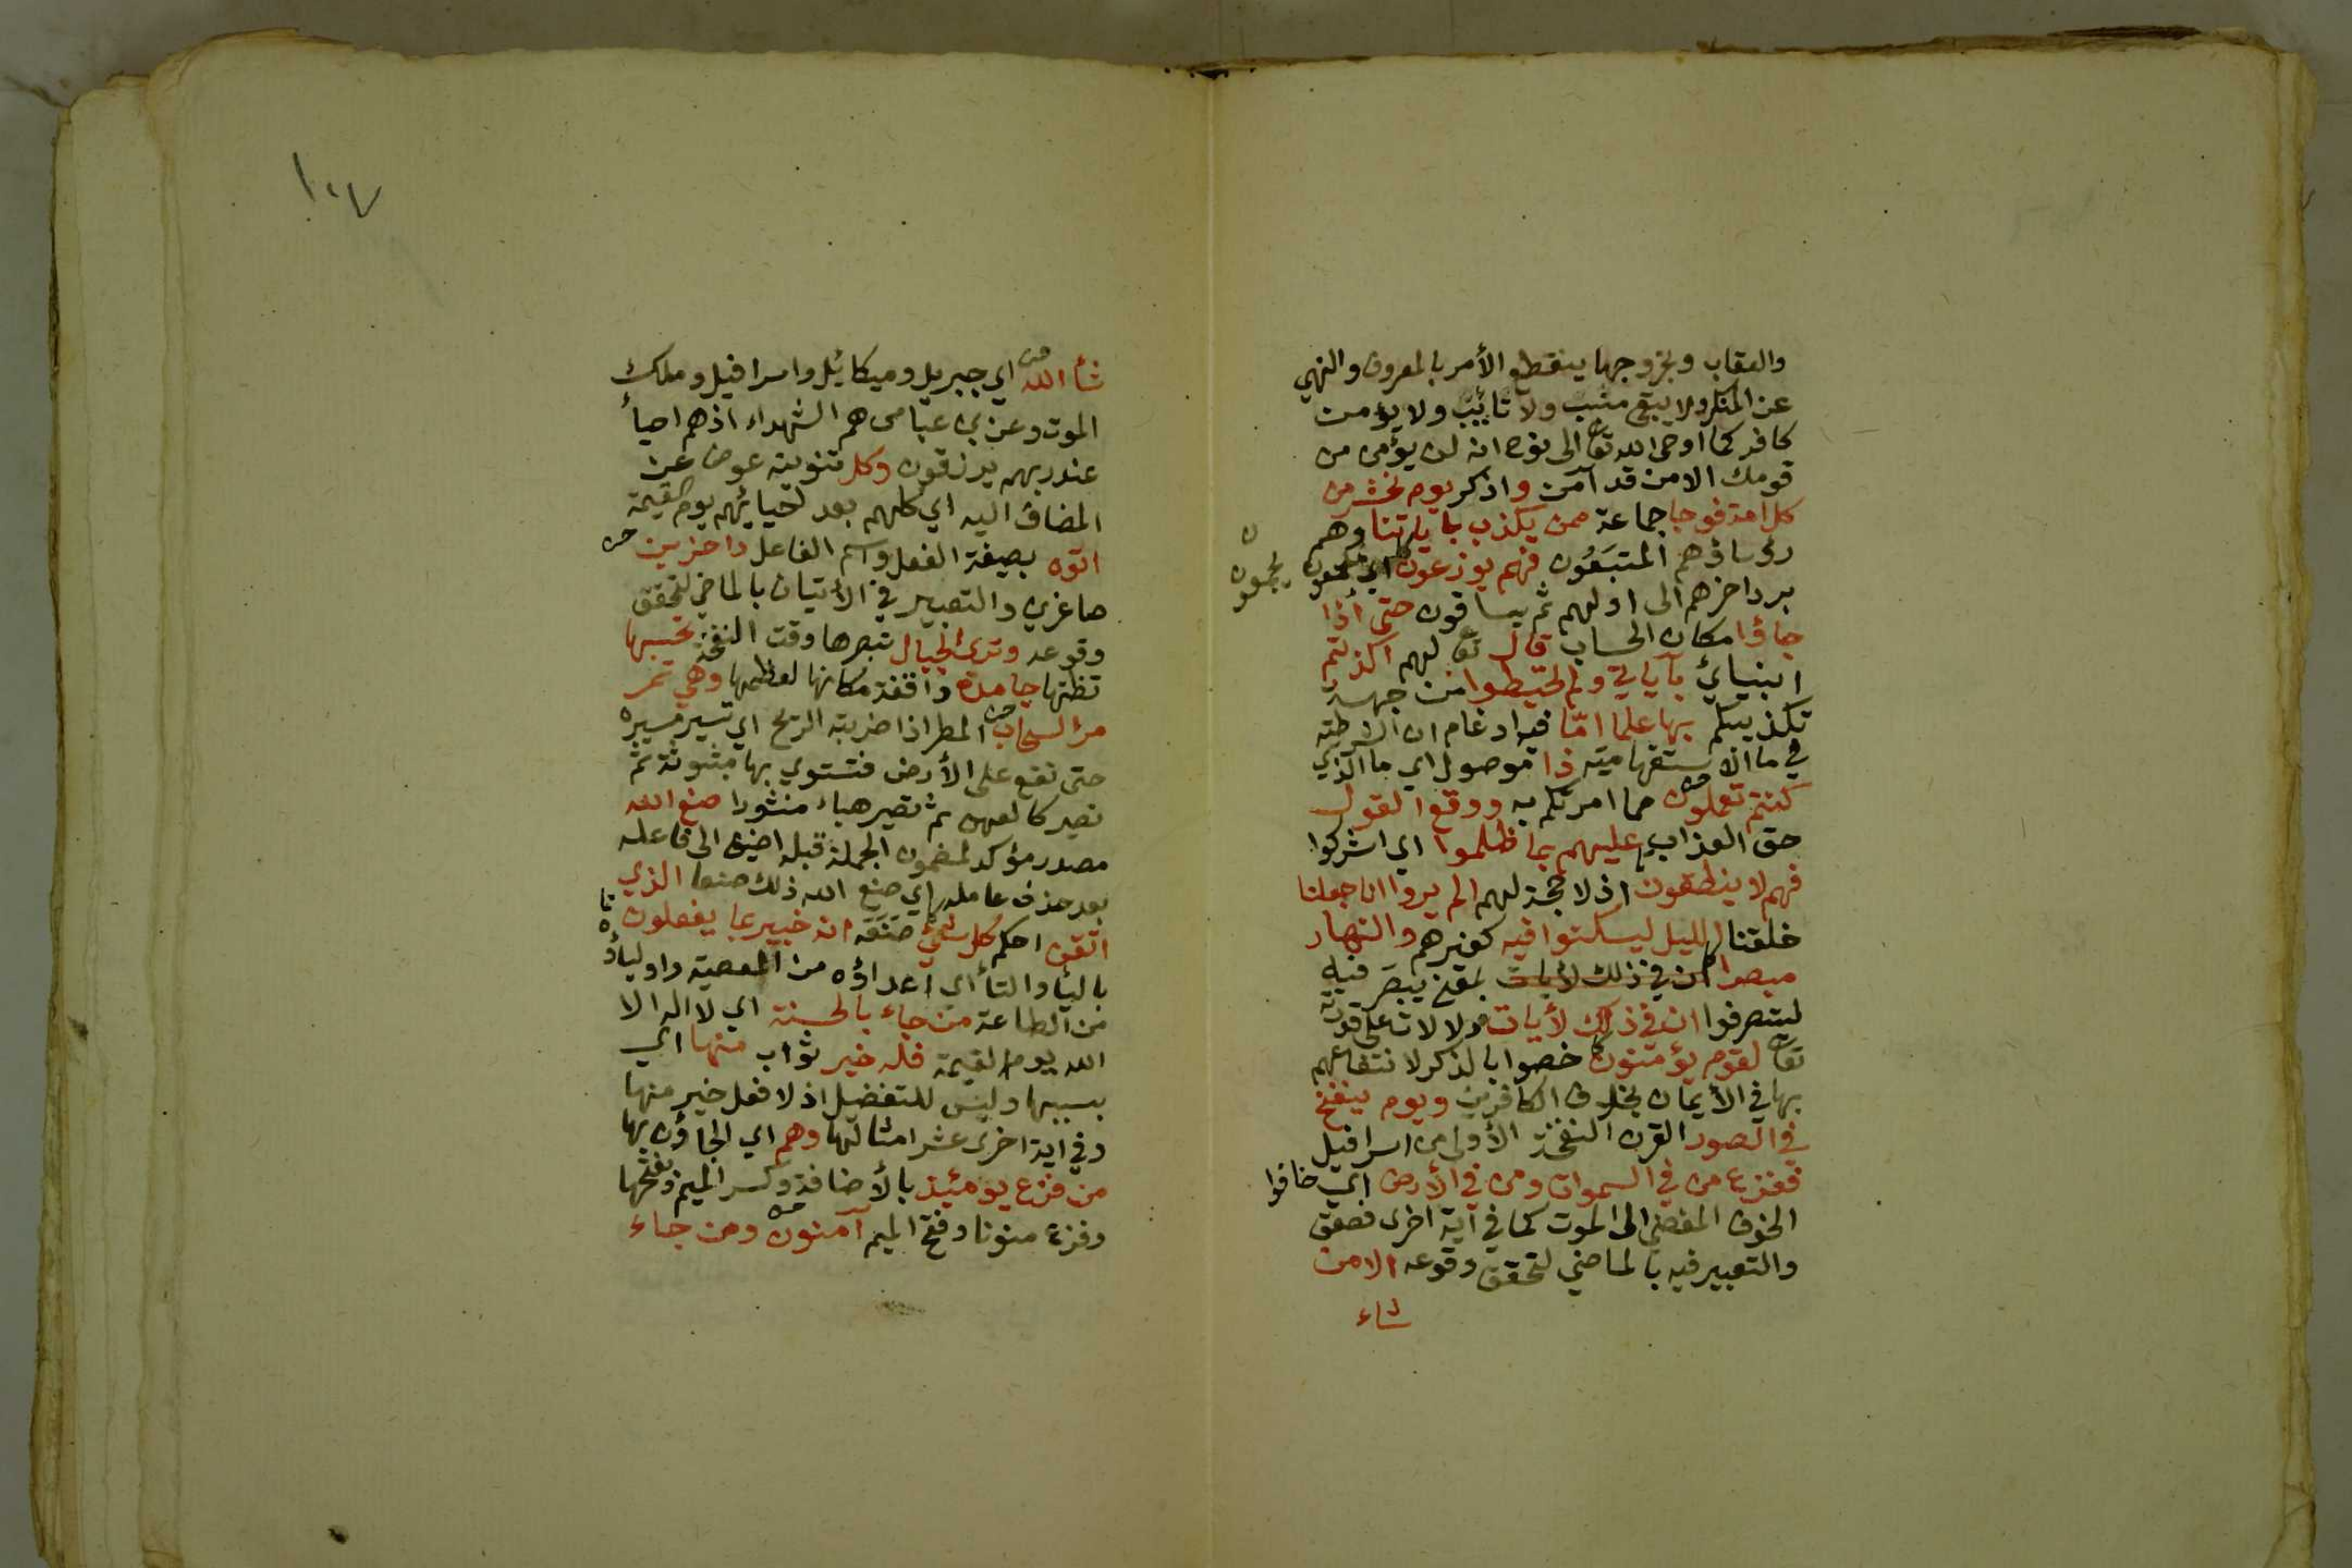 والعقاب وبخروجها ينقطع الأمر بالمعروف والنهي
عن المنكر ولا يبقى منيب ولا تائب ولا يؤمن
كافر كما اوحى الله تعا الى نوح انه لن يؤمن من
قومك الا من قد آمن واذكر يوم نحشر من
كل امة فوجا جماعة ممن يكذب باياتنا وهم
رؤساؤهم المتبَعُون فهم يوزعون اي يجمعون
يجمعون
برد اخرهم الى اولهم ثم يساقون حتى اذا
جاؤا مكان الحساب قال تعا لهم اكذبتم
انبيائي بآياتي ولم تحيطوا من جهة
تكذيبكم بها علما امّا فيه ادغام ان الشرطية
في ما الاستفهامية ذا موصول اي ما الذي
كنتم تعملون مما امرتكم به ووقع القول
حق العذاب عليهم بما ظلموا اي اشركوا
فهم لا ينطقون اذ لا حجة لهم الم يروا انا جعلنا
خلقنا الليل ليسكنوا فيه كغيرهم والنهار
مبصرا ان في ذلك لأيات بمعنى يبصر فيه
ليتصرفوا ان في ذلك لأيات دلالات على قدرته
تعا لقوم يؤمنون خصوا بالذكر لانتفاعهم
بها في الأيمان بخلاف الكافرين ويوم ينفخ
في الصور القرن النفخة الأولى من اسرافيل
ففزع من في السموات ومن في الأرض اي خافوا
الخوف المفضي الى الموت كما في آية اخرى فصعق
والتعبير فيه بالماضي لتحقق وقوعه الا من
شاء
١٠٧
شأ الله اي جبريل وميكائيل واسرافيل وملك
الموت وعن بن عباس هم الشهداء اذ هم احيأ
عند ربهم يرزقون وكل تنوينه عوض عن
المضاف اليه اي كلهم بعد احيائهم يوم القيمة
اتوه بصيغة الفعل واسم الفاعل داخرين
صاغرين والتعبير في الأتيان بالماضي لتحقق
وقوعه وترى الجبال تبصرها وقت النفخة تحسبها
تظنها جامدة واقفة مكانها لعظمها وهي تمر
مر السحاب المطر اذا ضربته الريح اي تسير مسيره
حتى تقع على الأرض فتستوي بها مبثوثة ثم
تصير كالعهن ثم تصير هباء منثورا صنع الله
مصدر مؤكد لمضمون الجملة قبله اضيف الى فاعله
بعد حذف عامله اي صنع الله ذلك صنعا الذي
اتقن احكم كل شيء صنَعَه انه خبير بما يفعلون
باليأ والتأ اي اعداؤه من المعصية واولياؤه
من الطاعة من جاء بالحسنة اي لا اله الا
الله يوم القيمة فله خير ثواب منها اي
بسببها وليس للتفضيل اذ لا فعل خير منها
وفي اية اخرى عشر امثالها وهم اي الجاؤن بها
من فزع يومئيذ بالأضافة وكسر الميم وفتحها
وفزع منونا وفتح الميم آمنون ومن جاء